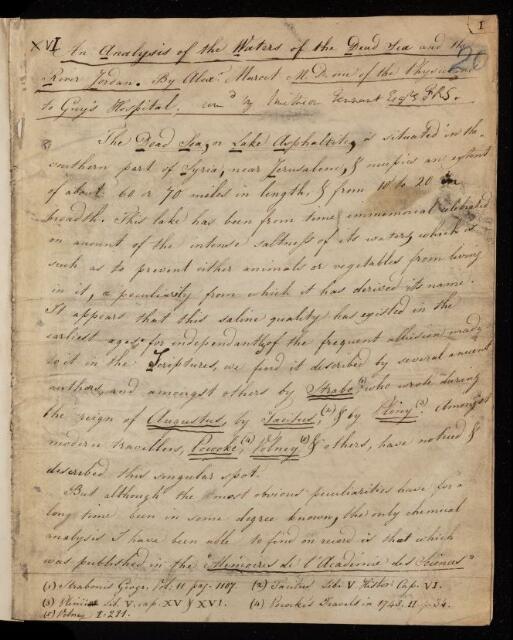 1
XVI An Analysis of the Waters of the Dead Sea and the
River Jordan. By Alexr Marcet M.D. one of the Physicians
to Guy's Hospital. comd by Smithson Tennant Esqre FRS.
The Dead Sea, or Lake Asphaltites, is situated in the
southern part of Syria, near Jerusalem, & occupies an extent
of about 60 or 70 miles in length, & from 10 to 20 in
breadth. This lake has been from time immemorial celebrated
on account of the intense saltness of its waters, which is
such as to prevent either animals or vegetables from living
in it, a peculiarity from which it has derived its name.
It appears that this saline quality has existed in the
earliest ages; for independantly of the frequent allusion made
to it in the Scriptures, we find it described by several ancient
authors, and amongst others by Strabo (1) who wrote during
the reign of Augustus, by Tacitus, (2) & by Pliny (3). Amongst
modern travellers, Pococke, (4) Volney (5) & others, have noticed &
described this singular spot.
But although the most obvious peculiarities have for a
long time been in some degree known, the only chemical
analyses I have been able to find on record is that which
was published in the "Mémoires de l'Académie des Sciences"
(1) Strabonis Geogr. Vol. II pag. 1107. (2) Tacitus Lib. V. Histor. Cap. VI.
(3) Plinius Lib. V. cap. XV & XVI. (4) Pococke's Travels in 1743. II. p. 34.
(5) Volney I. 281.